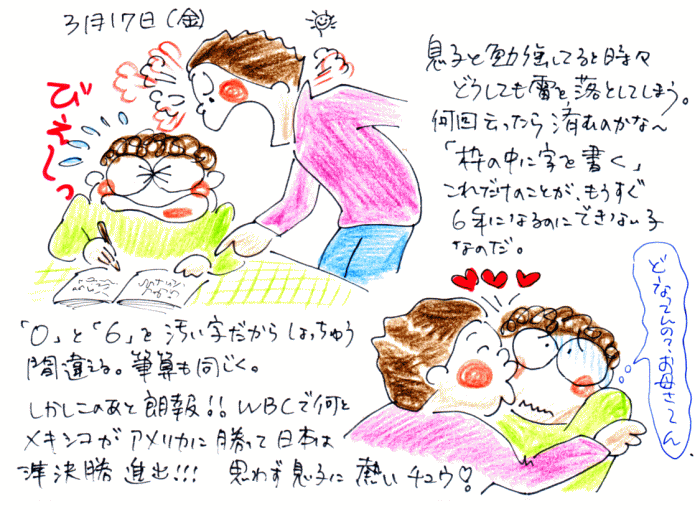 3月17日（金）
びえ〜っ
息子と勉強してると時々
どうしても雷を落としてしまう。
何回言ったら済むのかな〜
「枠の中に字を書く」
これだけのことが、もうすぐ
6年になるのにできない子
なのだ。
どーなってんの？お母さてん
「0」と「6」を汚い字だからしょっちゅう
間違える。筆算も同じく。
しかしこのあと朗報!! WBCで何と
メキシコがアメリカに勝って日本は
準決勝進出!!! 思わず息子に熱いチュウ♡